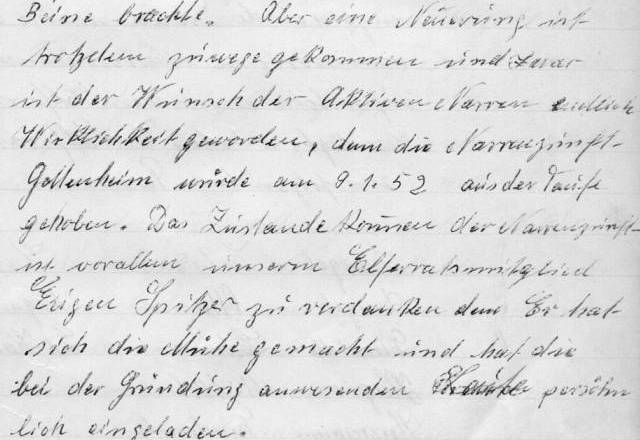 Beine brachte. Aber eine Neuerung ist
trotzdem zuwege gekommen und zwar
ist der Wunsch der Aktiven Narren endlich
Wirklichkeit geworden, denn die Narrenzunft-
Gottenheim wurde am 9.1.52 aus der Taufe
gehoben. Das Zustandekommen der Narrenzunft-
ist vorallem unserm Elferratsmitglied
Eugen Spitzer zu verdanken denn Er hat
sich die Mühe gemacht und hat die
bei der Gründung anwesenden persöhn
lich eingeladen.